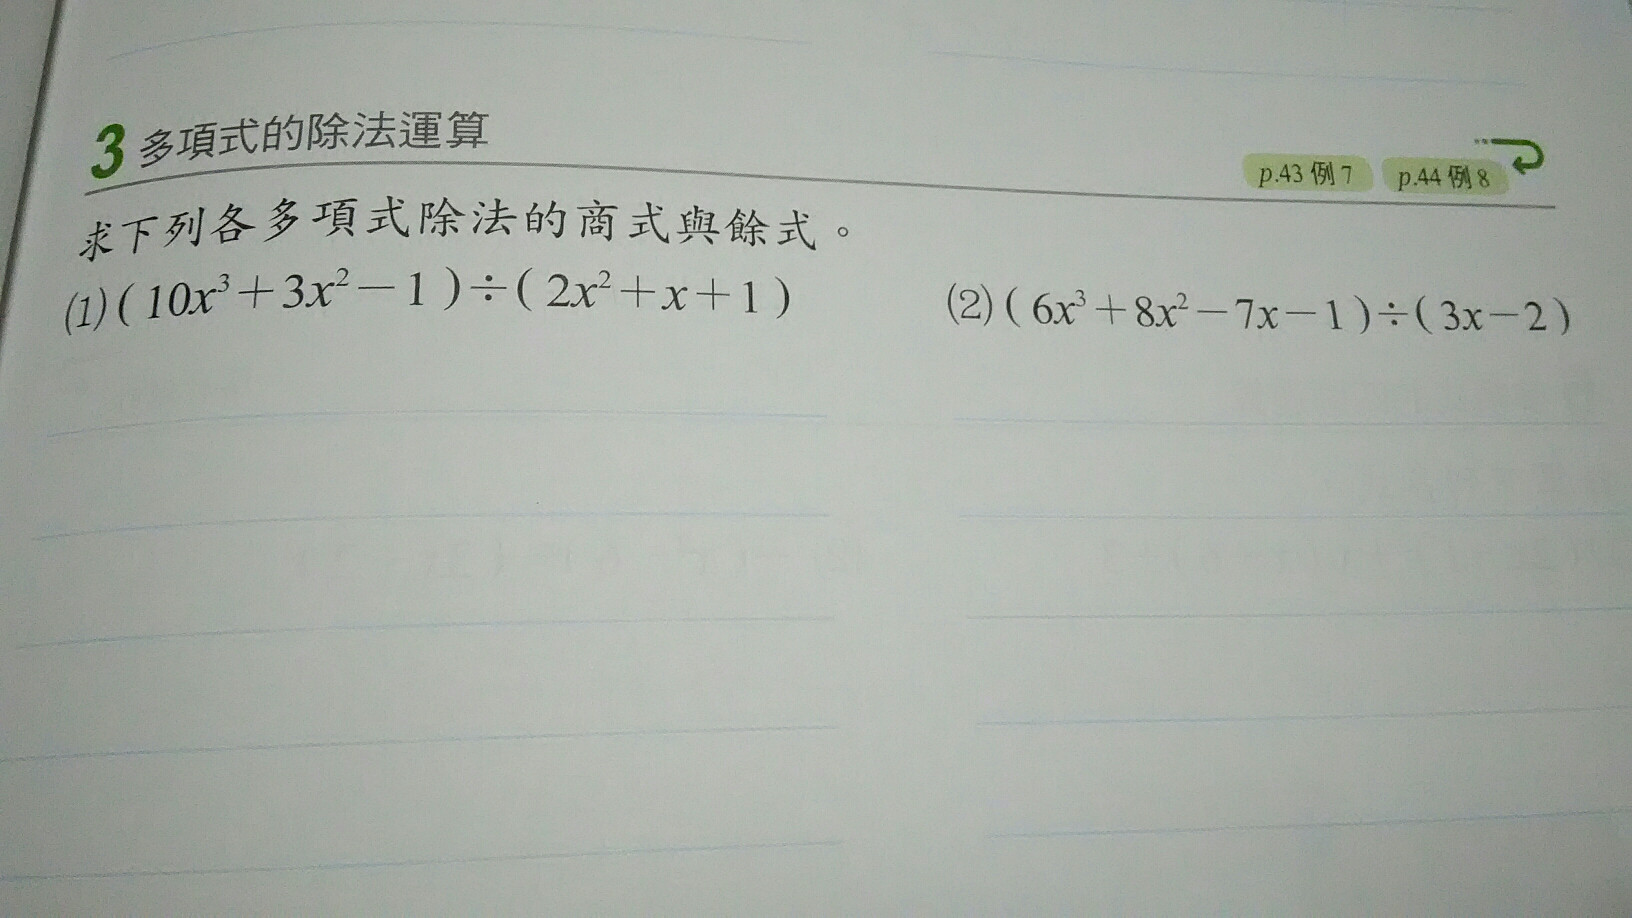 3 多項式的除法運算
p.43 例7 p.44 例8
求下列各多項式除法的商式與餘式。
(1)(10x³+3x²-1)÷(2x²+x+1)
(2)(6x³+8x²-7x-1)÷(3x-2)